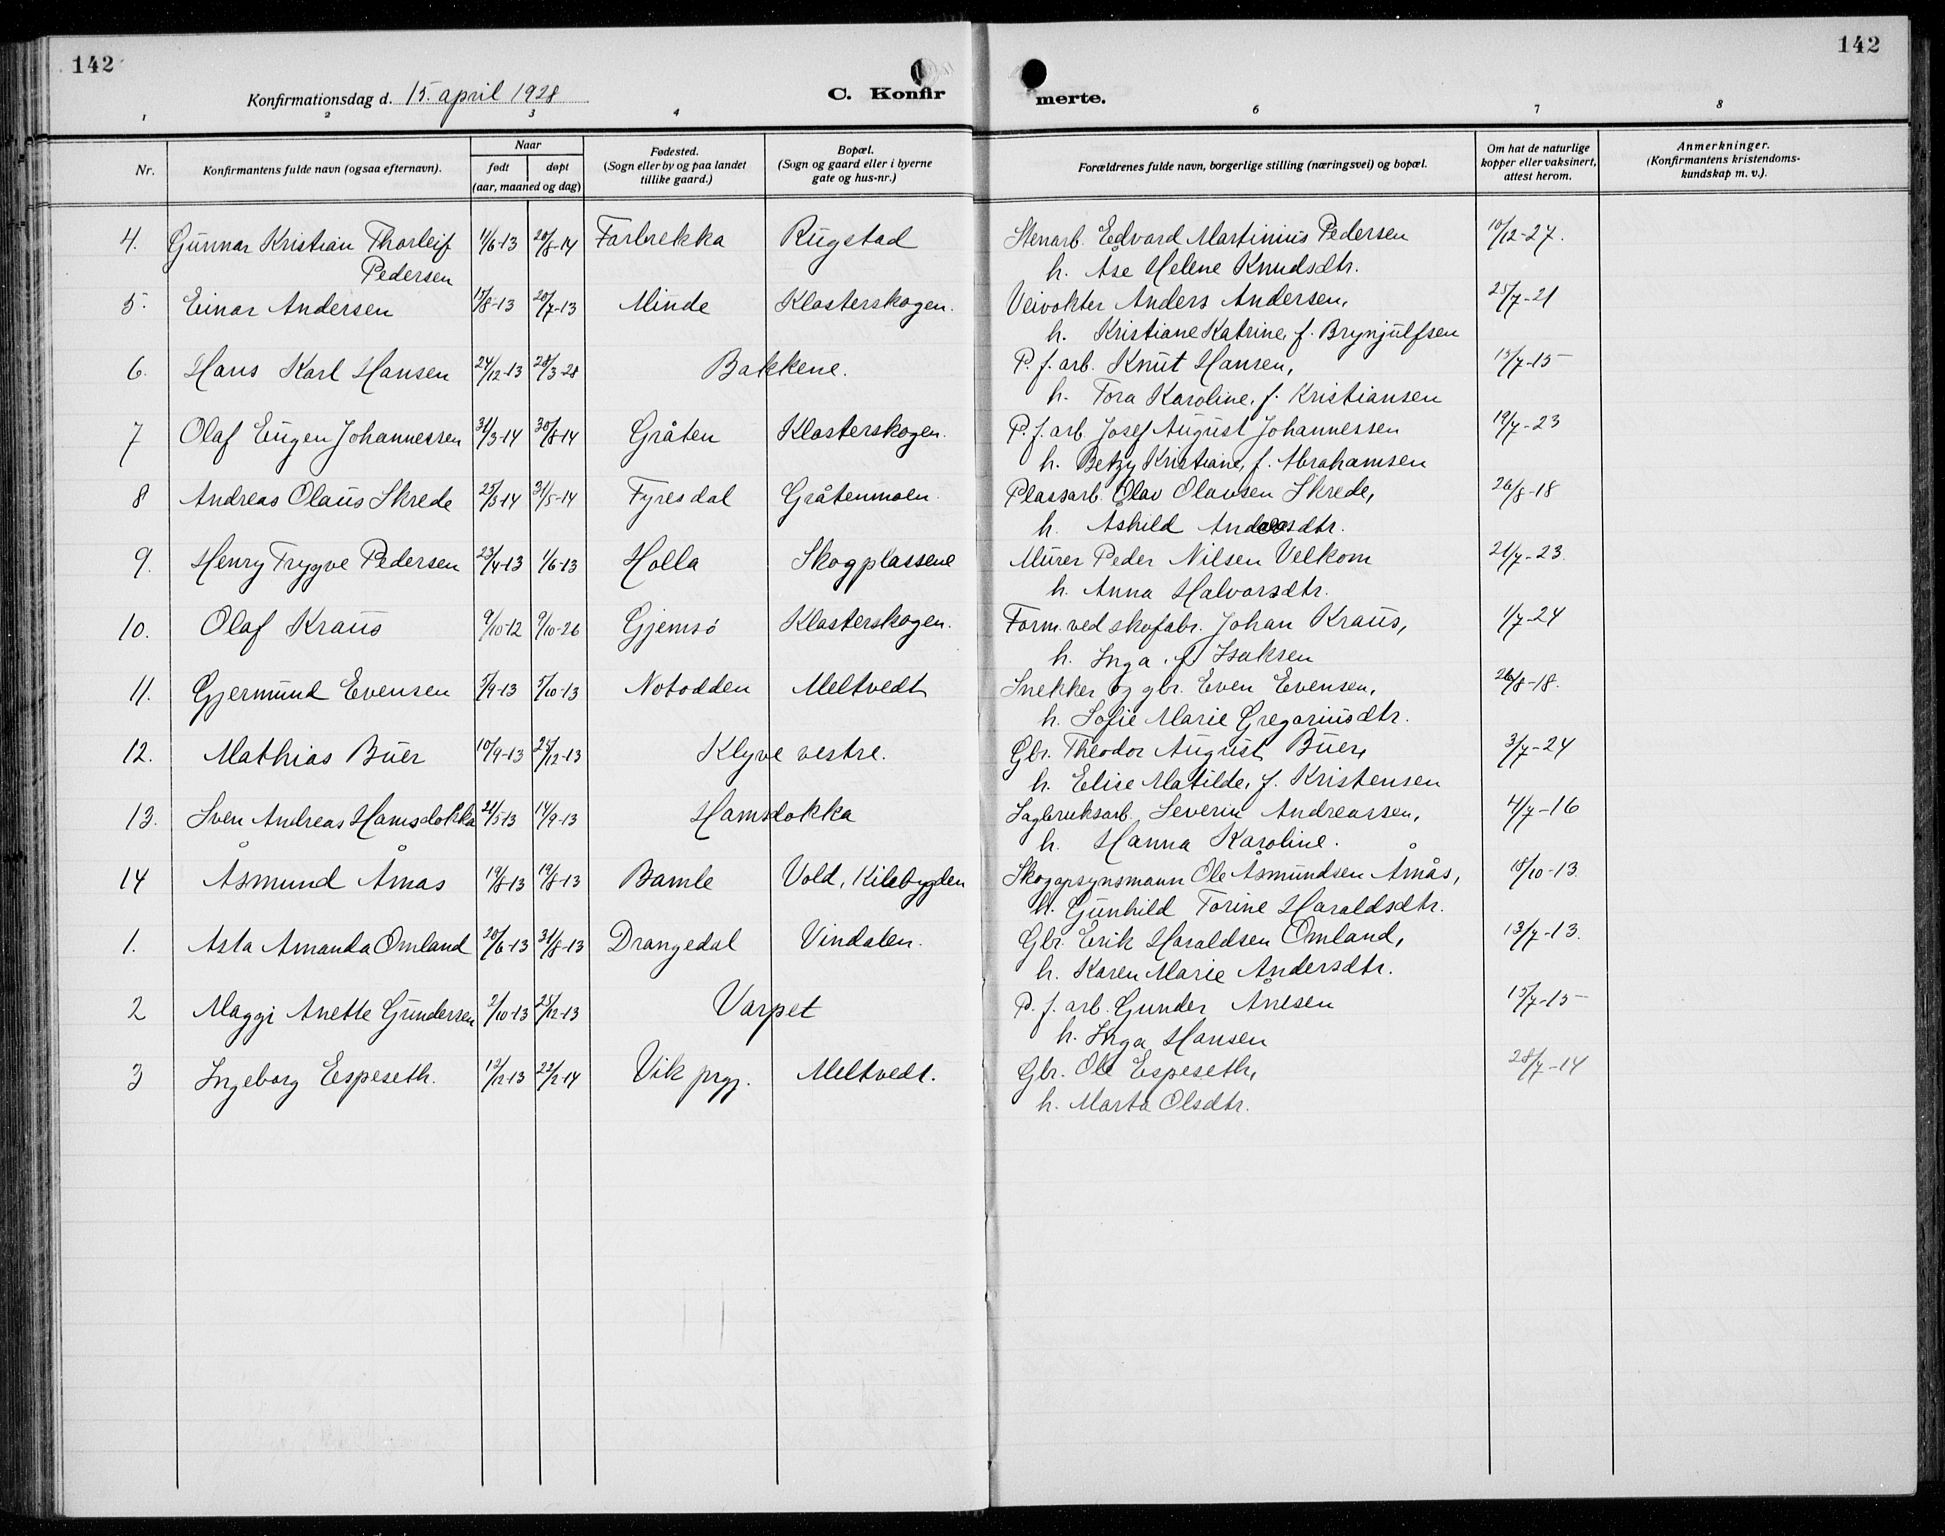 142
142
Konfirmationsdag d. 15. april 1928
C. Konfir
merte.
1 2 3 4 6 7 8
Nr.
Konfirmantens fulde navn (ogsaa efternavn).
Naar
født døpt
(aar, maaned og dag)
Fødested.
(Sogn eller by og paa landet
tillike gaard.)
Bopæl.
(Sogn og gaard eller i byerne
gate og hus-nr.)
Forældrenes fulde navn, borgerlige stilling (næringsvei) og bopæl.
Om hat de naturlige
kopper eller vaksinert,
attest herom.
Anmerkninger.
(Konfirmantens kristendoms-
kundskap m. v.).
4. Gunnar Kristian Thorleif 1/6-13 20/8-14 Farbrekka Rugstad Stenarb. Edvard Martinius Pedersen 10/12-27.
Pedersen h. Åse Helene Knudsdtr.
5. Einar Andersen 17/8-13 20/7-13 Minde Klosterskogen. Veivokter Anders Andersen, 25/7-21
h. Kristiane Katrine, f. Brynjulfsen
6. Hans Karl Hansen 24/12-13 28/3-28 Bakkene. P. f. arb. Knut Hansen, 15/7-15
h. Tora Karoline, f. Kristiansen
7 Olaf Eugen Johannessen 31/3-14 30/8-14 Gråten Klosterskogen. P. f. arb. Josef August Johannessen 19/7-23
h. Betzy Kristiane, f. Abrahamsen
8 Andreas Olaus Skrede 25/3-14 31/5-14 Fyresdal Gråtenmoen. Plassarb. Olav Olavsen Skrede, 26/8-18
h. Åshild Andersdtr.
9. Henry Trygve Pedersen 23/4-13 1/6-13 Holla Skogplassene Murer Peder Nilsen Velkom 21/7-23.
h. Anna Halvorsdtr.
10. Olaf Kraus 9/10-12 9/10-26 Gjemsö Klosterskogen. Form. ved skofabr. Johan Kraus, 1/7-24
h. Inga, f. Isaksen
11. Gjermund Evensen 5/9-13 5/10-13 Notodden Meltvedt Snekker og gbr. Even Evensen, 26/8-18.
h. Sofie Marie Gregoriusdtr.
12. Mathias Buer 10/9-13 25/12-13 Klyve vestre. Gbr. Theodor August Buer, 3/7-24
h. Elise Matilde, f. Kristensen
13. Sven Andreas Hamsdokka 21/5-13 14/9-13 Hamsdokka Sagbruksarb. Severin Andreassen, 4/7-16
h. Hanna Karoline.
14 Åsmund Årnas 19/8-13 19/8-13 Bamle Vold, Kilebygden Skogopsynsmann Ole Asmundsen Årnås, 18/10-13.
h. Gunhild Torine Haraldsdtr.
1. Asta Amanda Omland 20/6-13 31/8-13 Drangedal Vindalen. Gbr. Erik Haraldsen Omland, 13/7-13.
h. Karen Marie Andersdtr.
2 Maggi Anette Gundersen 2/10-13 25/12-13 Varpet P. f. arb. Gunder Anesen 15/7-15
h. Inga Hansen
3 Ingeborg Espeseth. 13/12-13 22/2-14 Vik prgj. Meltvedt. Gbr. Ole Espeseth, 28/7-14
h. Marta Olsdtr.